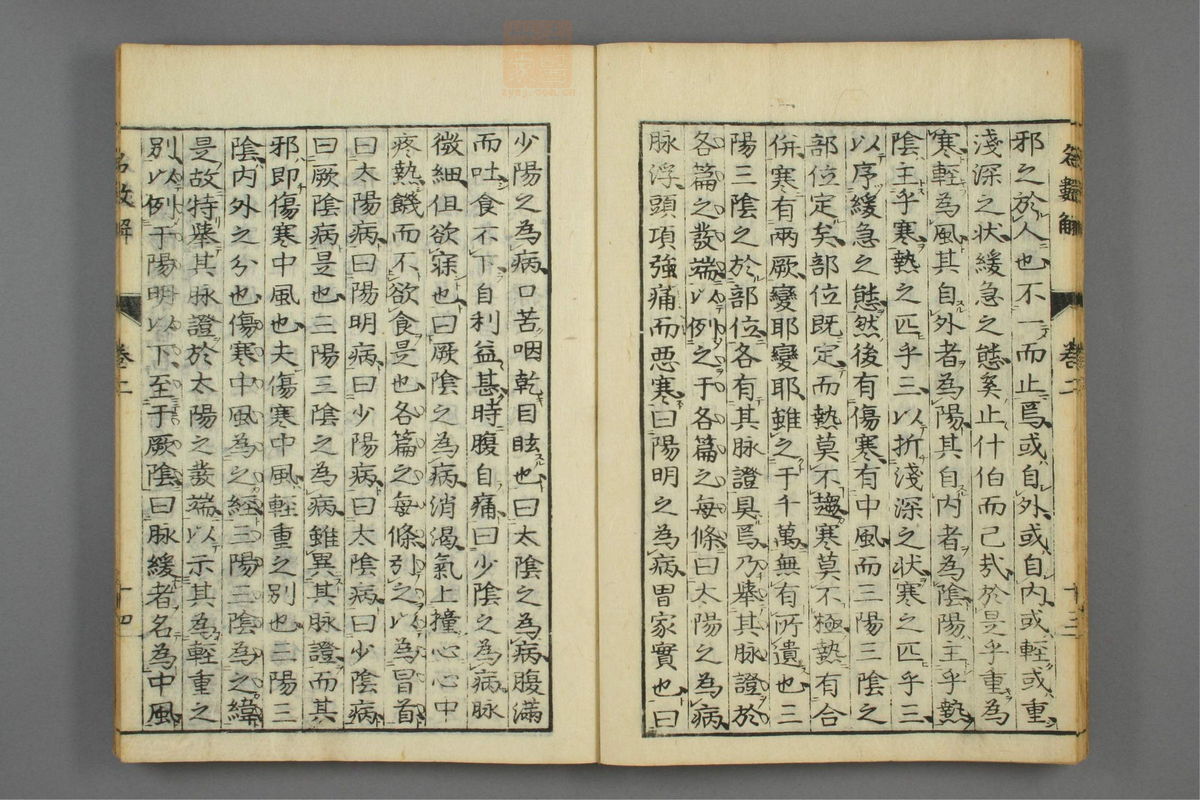 邪之於人也不一而止焉或自外或自内或輕或重
淺深之状緩急之態奚止什伯而已哉於是乎重為
寒輕為風其自外者為陽其自内者為陰陽主乎熱
陰主乎寒熱之匹乎三以折淺深之状寒之匹乎三
以序緩急之態然後有傷寒有中風而三陽三陰之
部位定矣部位既定而熱莫不趨寒莫不極熱有合
併寒有兩厥變耶變耶雖之于千萬無有所遺也三
陽三陰之於部位各有其脉證具焉乃舉其脉證於
各篇之發端以例之于各篇之每條曰太陽之為病
脉浮頭項強痛而惡寒曰陽明之為病胃家實也曰
卷二
十三
少陽之為病口苦咽乾目眩也曰太陰之為病腹滿
而吐食不下自利益甚時腹自痛曰少陰之為病脉
微細但欲寐也曰厥陰之為病消渴氣上撞心心中
疼熱饑而不欲食是也各篇之每條引之以為冒首
曰太陽病曰陽明病曰少陽病曰太陰病曰少陰病
曰厥陰病是也三陽三陰之為病雖異其脉證而其
邪即傷寒中風也夫傷寒中風輕重之別也三陽三
陰内外之分也傷寒中風為之經三陽三陰為之緯
是故特舉其脉證於太陽之發端以示其為輕重之
別以例于陽明以下至于厥陰曰脉緩者名為中風
卷二
十四